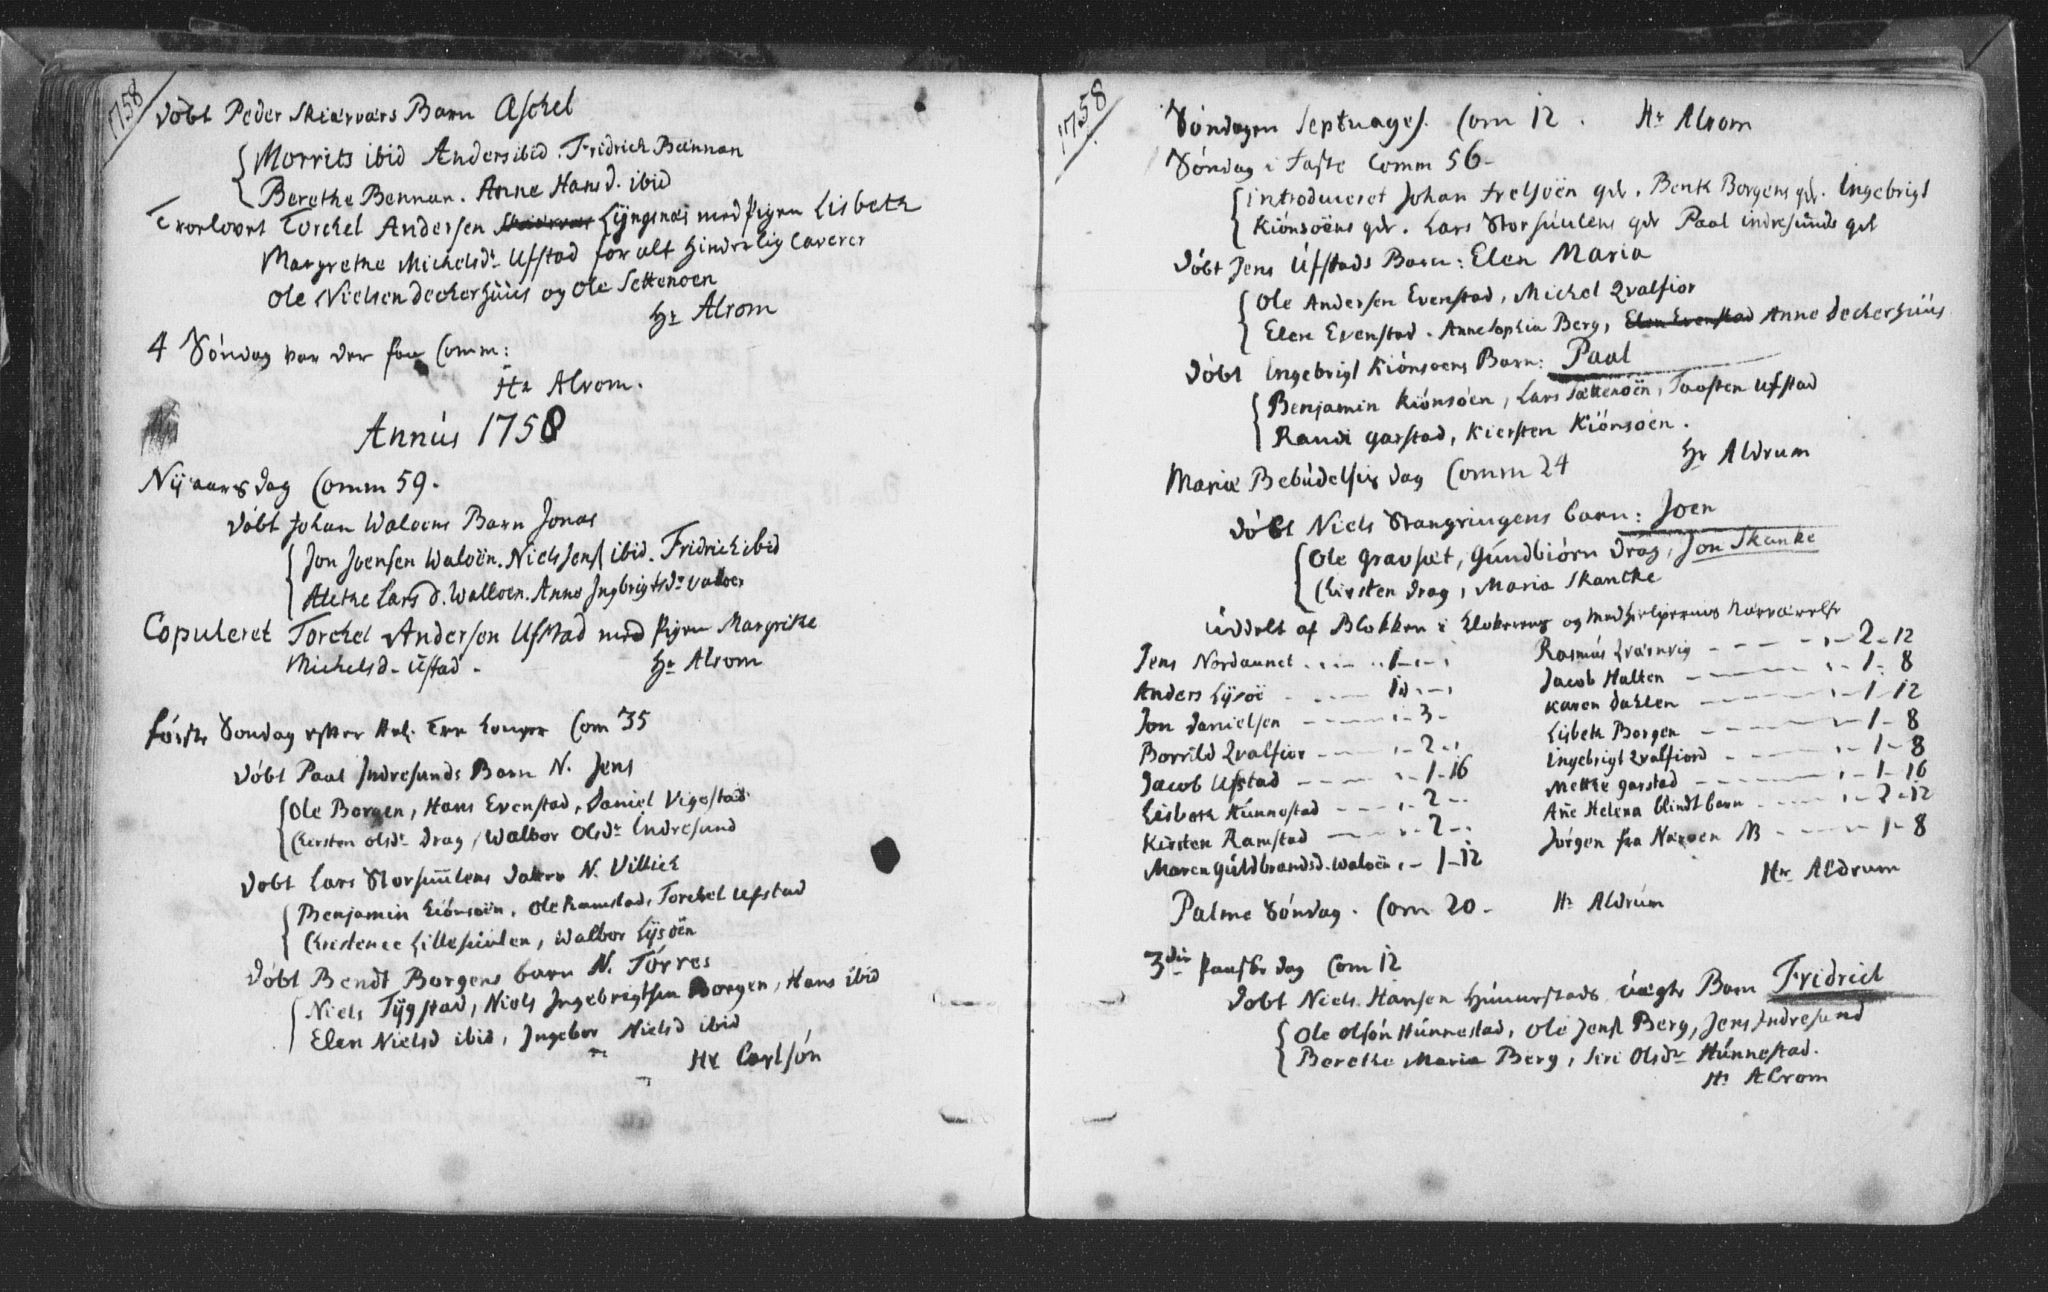 1758
Døbt Peder Skiærværs Barn Aschel
Morrits ibid Anders ibid. Fridrich Bennan
Berethe Bennan. Anne Hansd. ibid
Troelovet Torchel Andersen Lyngsnæs med Pigen Lisbeth
Margrethe Michelsdr Ufstad for alt hinderlig Caverer
Ole Nielsen Deckerhuus og Ole Settenoen
Hr Alrom
4 Søndag var der faa Comm:
Hr Alrom.
Annús 1758
Nyaars dag Comm 59.
Døbt Johan Waloens Barn Jonas
Jon Joensen Waloën. Niels Jens ibid. Fridrich ibid
Alethe Lars d. Walloen. Anne Ingbrigtsdr Valoer
Copuleret Torchel Andersen Ufstad med Pigen Margrethe
Michelsd. Ufstad.
Hr Alrom
første Søndag efter Hel. Tre Konger Com 35
Døbt Paal Indresunds Barn N. Jens
Ole Borgen, Hans Evenstad, Daniel Vigestad
Chersten Olsdr Drag, Walbor Olsdr Indresund
Døbt Lars Storsuulens Datter N. Villich
Benjamin Kiønsøën, Ole Ramstad, Torchel Ufstad
Chrestence Lillesuulen, Walbor Lysøën
Døbt Bendt Borgens barn N. Torres
Niels Tygstad, Niels Ingebrigtsen Borgen, Hans ibid
Elen Nielsd ibid, Ingebor Nielsd ibid
Hr Carlsón
1758
Søndagen Septuages. Com 12. Hr Alrom
Søndag i Faste Comm 56.
introduceret Johan Frelsøën qdr. Bent Borgens qdr. Ingebrigt
Kiønsøëns qdr. Lars Storsuulens qdr Paal indresunds qdr
Døbt Jens Ufstads Barn: Elen Maria
Ole Andersen Evenstad, Michel Qvalfior
Elen Evenstad. Anne Sophia Berg, Elen Evenstad Anne Deckerhuus
Døbt Ingebrigt Kiønsøens Barn: Paal
Benjamin Kiønsøen, Lars Sættenøën, Taasten Ufstad
Randi Garstad, Kiersten Kiönsøen.
Hr Aldrum
Mariæ Bebudelsis dag Comm 24
Døbt Niels Stangringens barn: Joen
Ole Gravsæt, Gúndbiørn Drag, Jon Skanke
Chirsten Drag, Maria Skancke
uddelt af Blokken i Klokerens og Medhielpernis Nærværelse
Jens Nordaunet - 1 -
Anders Lysøë - 10 -
Jon Danielsen - 3 -
Borrild Qvalfior - 2 -
Jacob Ufstad - 1 - 16
Lisbeth Húnnestad - 2 -
Kirsten Ramstad - 2 -
Maren Guldbrandsd. Waloën - 1 - 12
Rasmús Qvernvig - 2 - 12
Jacob Halten - 1 - 8
Karen Dahlen - 1 - 12
Lisbeth Borgen - 1 - 8
Ingebrigt Qvalfiord - 1 - 8
Mette Garstad - 1 - 16
Añe Helena blindt barn - 2 - 12
Jørgen fra Næroen NB - 1 - 8
Hr Aldrum
Palme Søndag. Com 20. Hr Aldrúm
3die Paaske dag Com 12
Døbt Niels Hansen Húnnestads uægte Barn Fridrich
Ole Olsón Húnnestad, Ole Jens Berg, Jens Indresund
Berethe Maria Berg, Siri Olsdr Húnnestad.
Hr Alrom